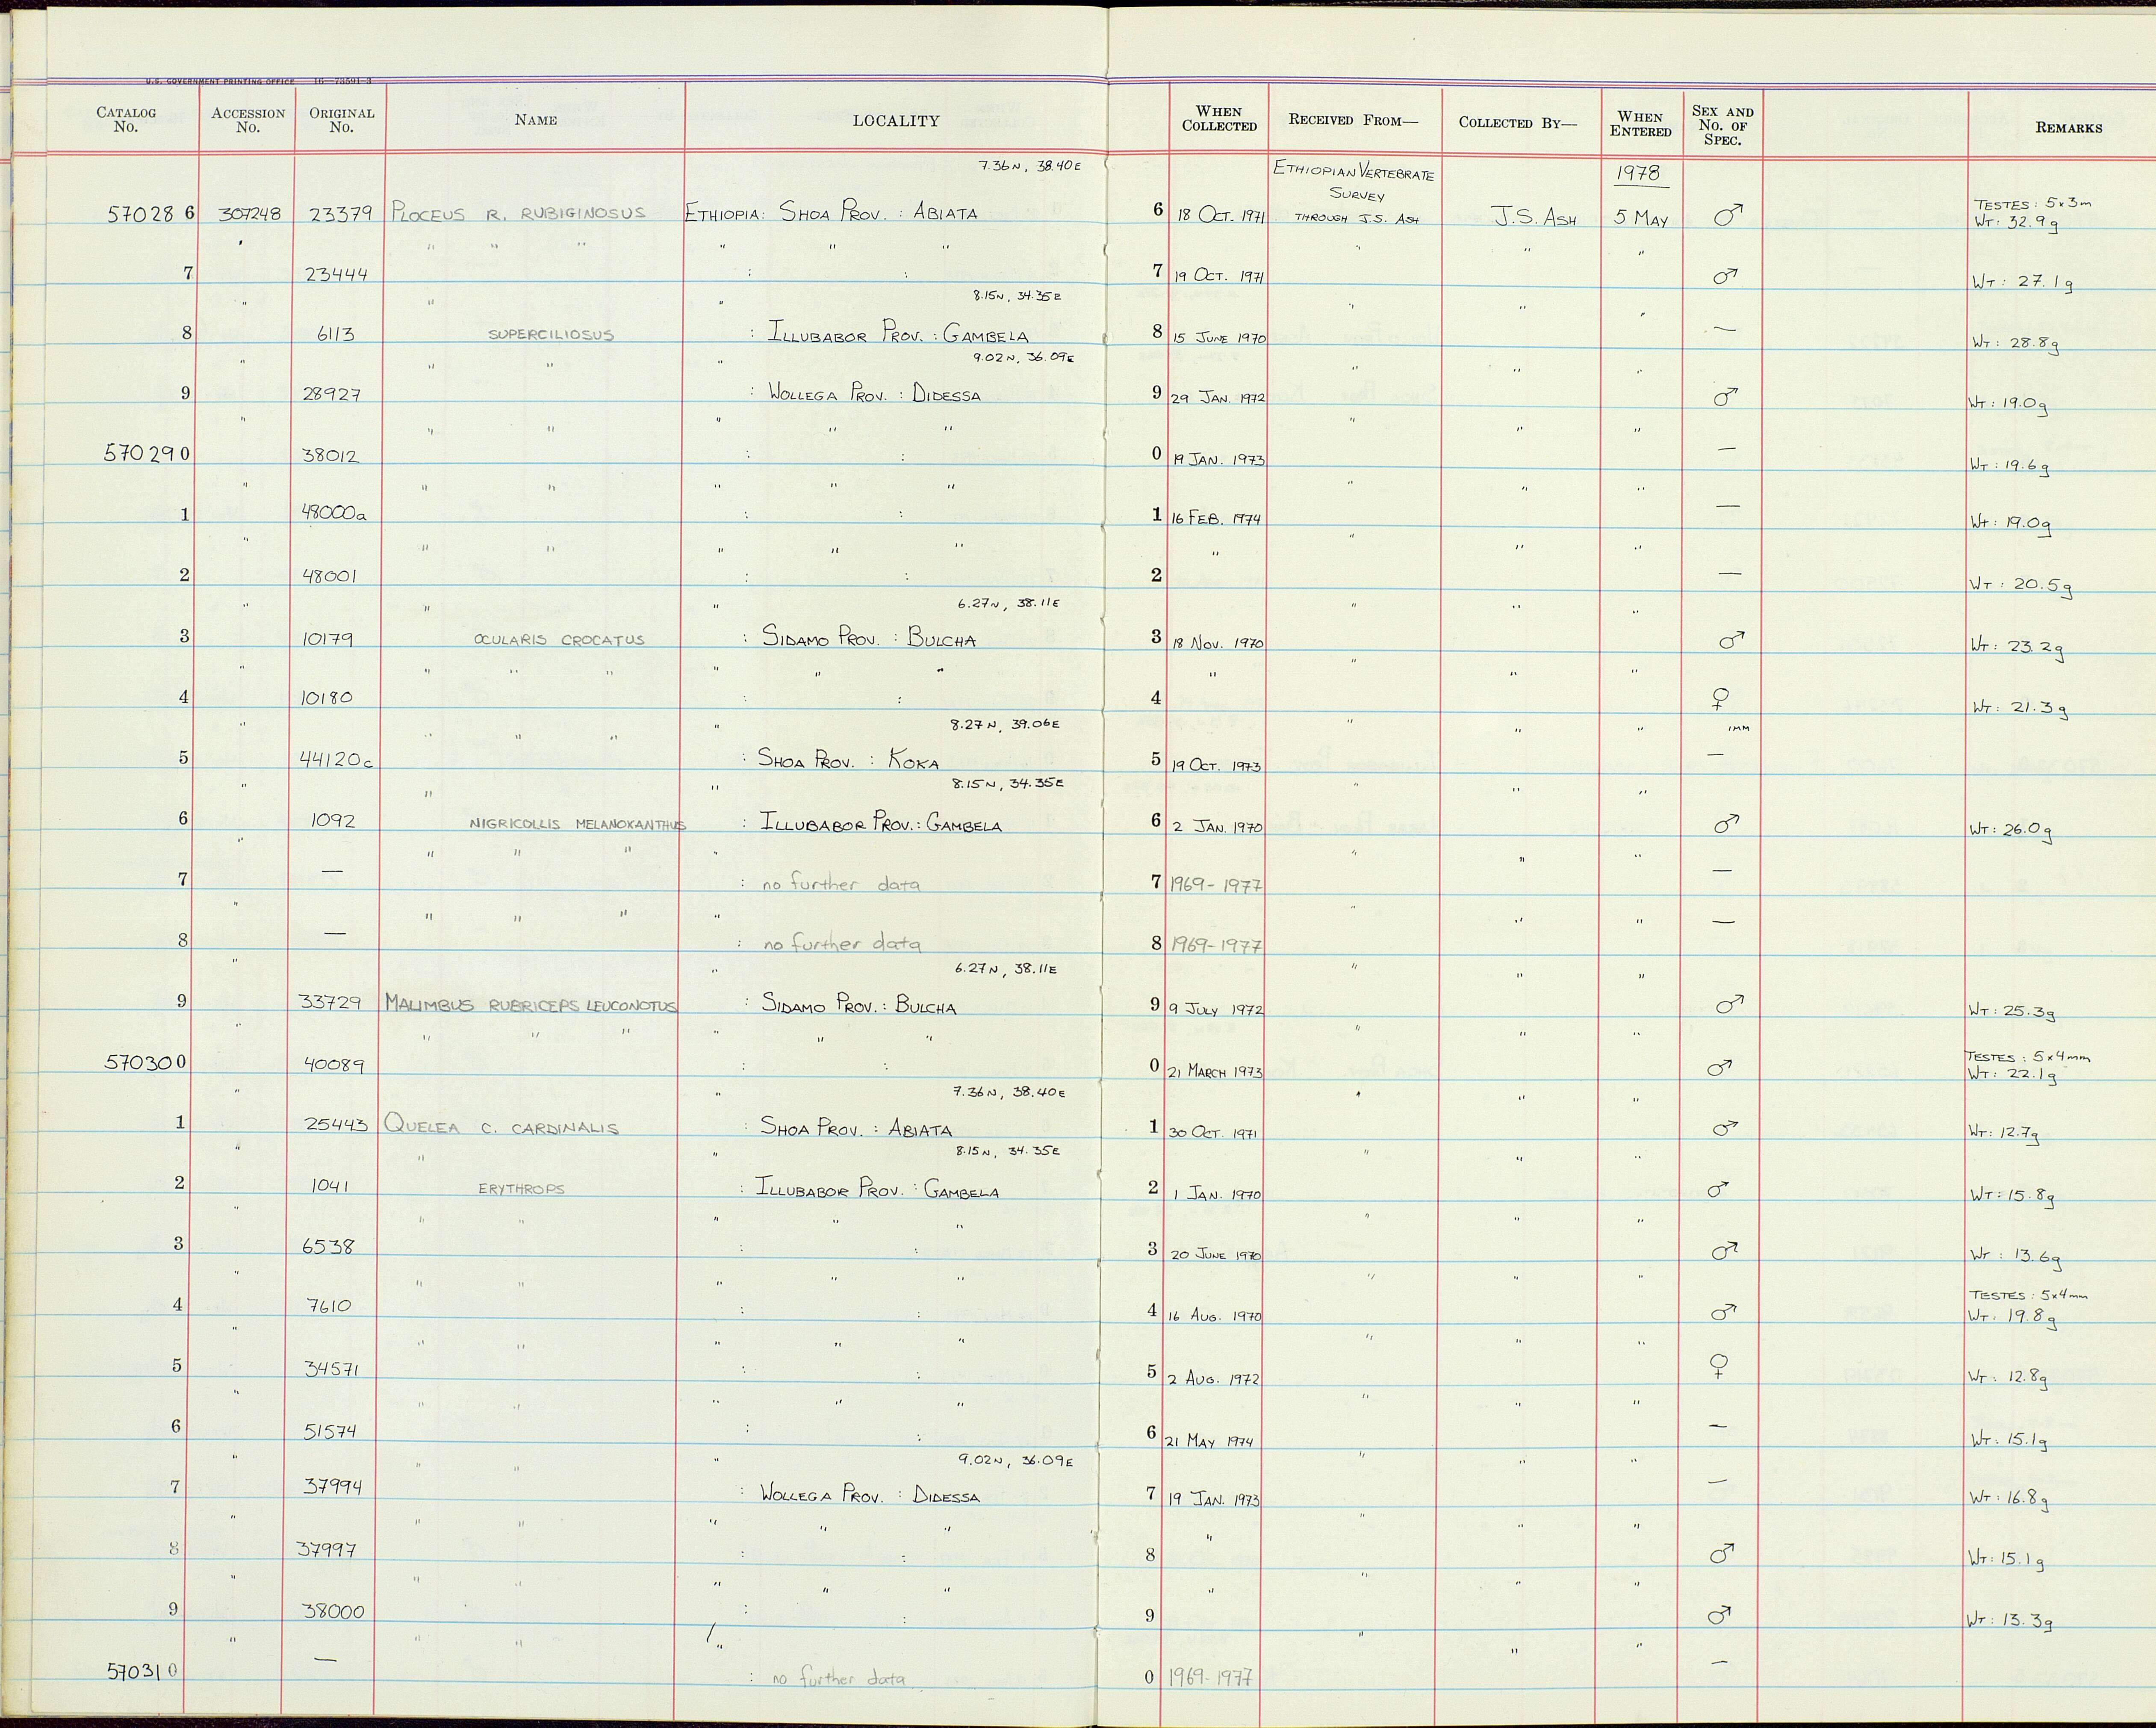 U.S. GOVERNMENT PRINTING OFFICE 16—73591-3
CATALOG No. ACCESSION No. ORIGINAL No. NAME LOCALITY WHEN COLLECTED RECEIVED FROM— COLLECTED BY— WHEN ENTERED SEX AND No. OF SPEC. REMARKS
7.36N, 38.40E ETHIOPIAN VERTEBRATE SURVEY 1978
570286 307248 23379 PLOCEUS R. RUBIGINOSUS ETHIOPIA: SHOA PROV. : ABIATA 6 18 OCT. 1971 THROUGH J.S. ASH J.S. ASH 5 MAY ♂ TESTES: 5x3m WT: 32.9g
" " " " " " " " " "
7 23444 : : 7 19 OCT. 1971 ♂ WT: 27.1g
" " " 8.15N, 34.35E " " "
8 6113 SUPERCILIOSUS : ILLUBABOR PROV. : GAMBELA 8 15 JUNE 1970 — WT: 28.8g
" " " " 9.02N, 36.09E " " "
9 28927 : WOLLEGA PROV. : DIDESSA 9 29 JAN. 1972 ♂ WT: 19.0g
" " " " " " " " "
570290 38012 : : 0 19 JAN. 1973 — WT: 19.6g
" " " " " " " " "
1 48000a : : 1 16 FEB. 1974 — Wt: 19.0g
" " " " " " " " " "
2 48001 : : 2 — WT: 20.5g
" " " 6.27N, 38.11E " " "
3 10179 OCULARIS CROCATUS : SIDAMO PROV. : BULCHA 3 18 NOV. 1970 ♂ WT: 23.2g
" " " " " " " " " " "
4 10180 : : 4 ♀ WT: 21.3g
" " " " " 8.27N, 39.06E " " " 1MM
5 44120c : SHOA PROV. : KOKA 5 19 OCT. 1973 —
" " " 8.15N, 34.35E " " "
6 1092 NIGRICOLLIS MELANOXANTHUS : ILLUBABOR PROV. : GAMBELA 6 2 JAN. 1970 ♂ WT: 26.0g
" " " " " " " "
7 — : no further data 7 1969-1977 —
" " " " " " " "
8 — : no further data 8 1969-1977 —
" " 6.27N, 38.11E " " "
9 33729 MALIMBUS RUBRICEPS LEUCONOTUS : SIDAMO PROV. : BULCHA 9 9 JULY 1972 ♂ WT: 25.3g
" " " " " " " " " "
570300 40089 : : 0 21 MARCH 1973 ♂ TESTES: 5x4mm WT: 22.1g
" " 7.36N, 38.40E " " "
1 25443 QUELEA C. CARDINALIS : SHOA PROV. : ABIATA 1 30 OCT. 1971 ♂ WT: 12.7g
" " " 8.15N, 34.35E " " "
2 1041 ERYTHROPS : ILLUBABOR PROV. : GAMBELA 2 1 JAN. 1970 ♂ WT: 15.8g
" " " " " " " " "
3 6538 : : 3 20 JUNE 1970 ♂ WT: 13.6g
" " " " " " " " "
4 7610 : : 4 16 AUG. 1970 ♂ TESTES: 5x4mm WT. 19.8g
" " " " " " " " "
5 34571 : : 5 2 AUG. 1972 ♀ WT: 12.8g
" " " " " " " " "
6 51574 : : 6 21 MAY 1974 — WT: 15.1g
" " " " 9.02N, 36.09E " " "
7 37994 : WOLLEGA PROV. : DIDESSA 7 19 JAN. 1973 — WT: 16.8g
" " " " " " " " " "
8 37997 : : 8 ♂ WT: 15.1g
" " " " " " " " " "
9 38000 : : 9 ♂ WT: 13.3g
" " " " " " "
570310 — : no further data 0 1969-1977 —